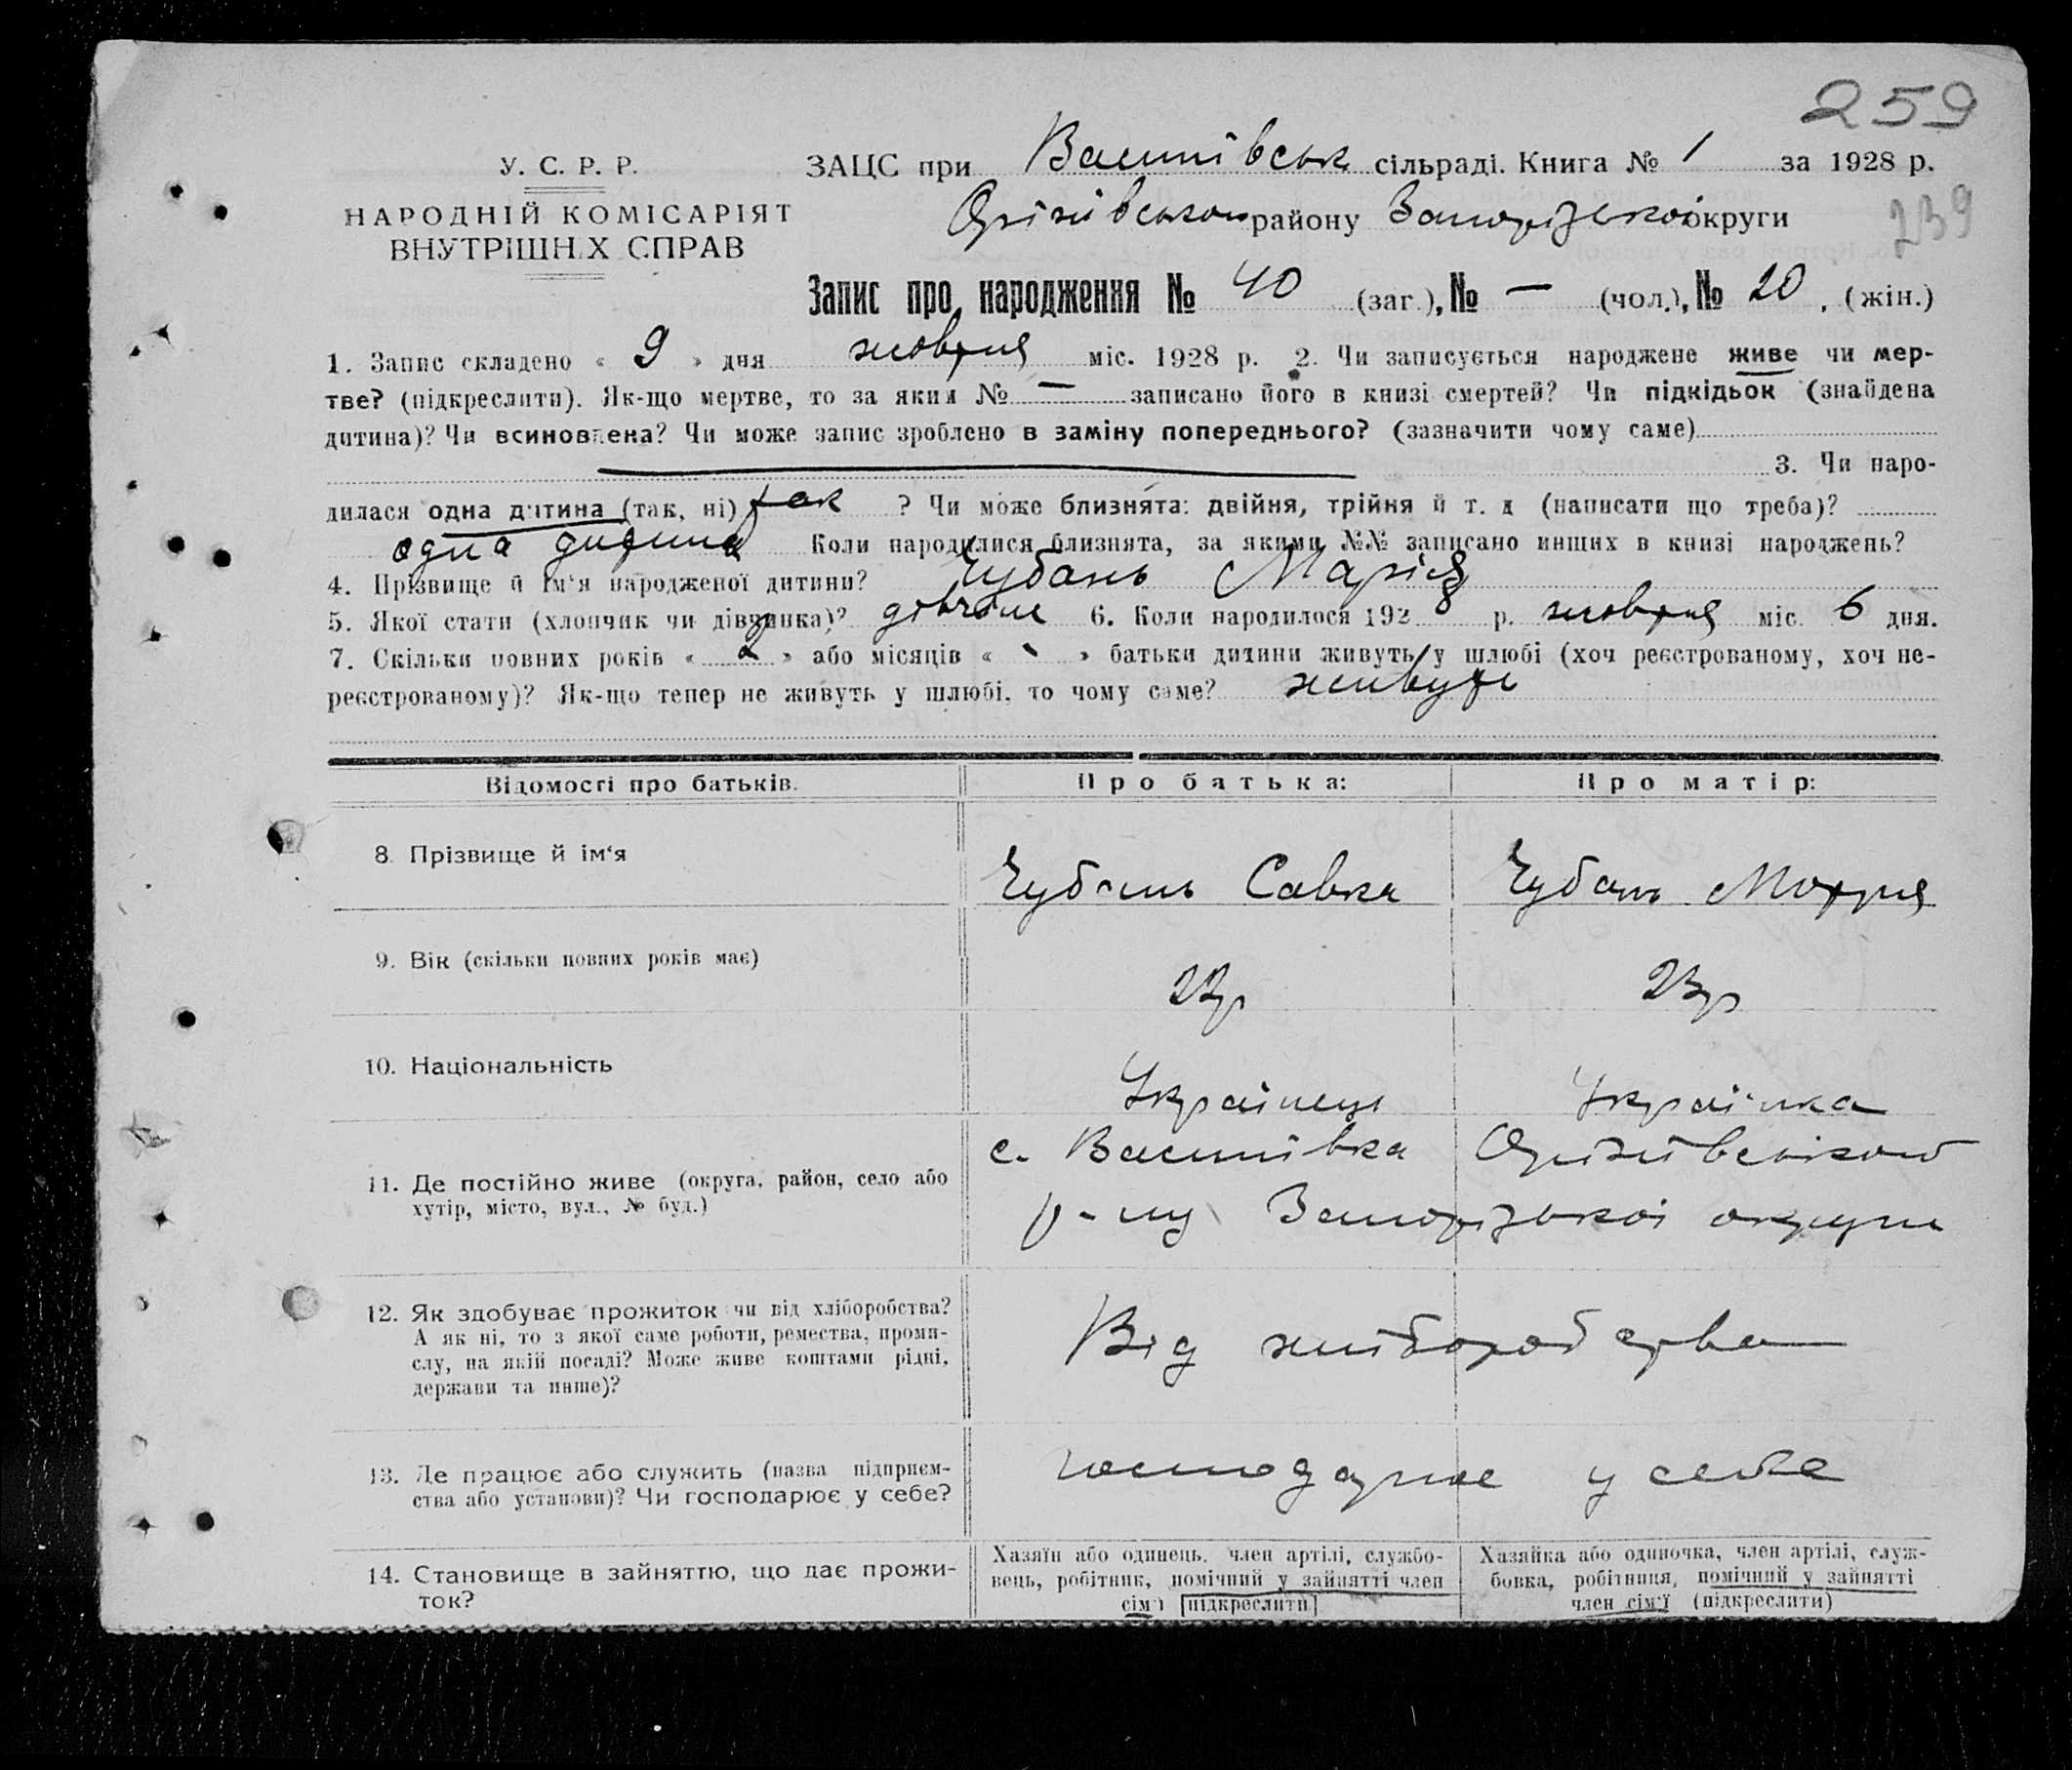 259
У. С. Р. Р.
НАРОДНІЙ КОМІСАРІЯТ
ВНУТРІШНІХ СПРАВ
ЗАЦС при сільраді. Книга № 1 за 1928 р.
Оріхівського району Запорізької округи
239
Запис про народження № 40 (заг.), № — (чол.), № 20, (жін.)
1. Запис складено « 9 » дня жовтня міс. 1928 р. 2. Чи записується народжене живе чи мер-
тве? (підкреслити). Як-що мертве, то за яким № — записано його в книзі смертей? Чи підкідьок (знайдена
дитина)? Чи всиновлена? Чи може запис зроблено в заміну попереднього? (зазначити чому саме)
3. Чи наро-
дилася одна дитина (так, ні) так ? Чи може близнята: двійня, трійня й т. д (написати що треба)?
одна дитина Коли народилися близнята, за якими №№ записано инших в книзі народжень?
4. Прізвище й ім‘я народженої дитини? Чубань Марія
5. Якої стати (хлопчик чи дівчинка)? 6. Коли народилося 1928 р. жовтня міс. 6 дня.
7. Скільки повних років « 2 » або місяців « » батьки дитини живуть у шлюбі (хоч реєстрованому, хоч не-
реєстрованому)? Як-що тепер не живуть у шлюбі, то чому саме? живуть
Відомості про батьків.
Про батька:
Про матір:
8. Прізвище й ім‘я
Чубань Савка
Чубань Мотря
9. Вік (скільки повних років має)
22р
23р
10. Національність
Українець
Українка
11. Де постійно живе (округа, район, село або
хутір, місто, вул., № буд.)
с. Оріхівського
р-ну Запорізької округи
12. Як здобуває прожиток чи від хліборобства?
А як ні, то з якої саме роботи, ремества, проми-
слу, на якій посаді? Може живе коштами рідні,
держави та инше)?
Від хліборобства
13. Де працює або служить (назва підприєм-
ства або установи)? Чи господарює у себе?
господарює у себе
14. Становище в зайняттю, що дає прожи-
ток?
Хазяїн або одинець, член артілі, службо-
вець, робітник, помічний у зайнятті член
сім‘ї [підкреслити]
Хазяйка або одиночка, член артілі, служ-
бовка, робітниця, помічний у зайнятті
член сім‘ї (підкреслити)